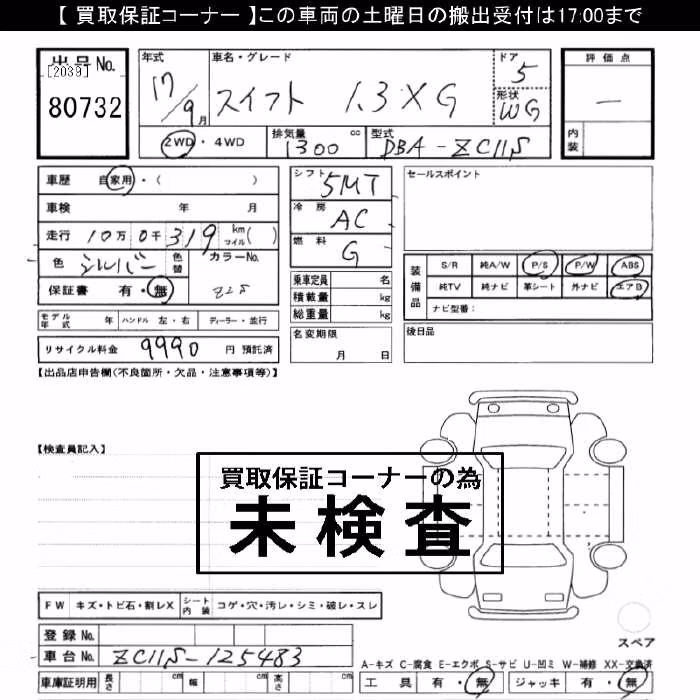 【 買取保証コーナー 】この車両の土曜日の搬出受付は17:00まで
出品No.
[2039]
80732
年式
17/9月
車名・グレード
スイフト 1.3XG
ドア
5
形状
WG
2WD・4WD
排気量 cc
1300
型式
DBA-ZC11S
評価点
—
内装
車歴 自家用・( )
車検 年 月
走行 10万0千319 km マイル( )
色 シルバー 色替
カラーNo.
Z2S
保証書 有・無
モデル年式 年 ハンドル 左・右 ディーラー・並行
リサイクル料金 9990 円 預託済
シフト 5MT
冷房 AC
燃料 G
乗車定員 名
積載量 kg
総重量 kg
名変期限
月 日
セールスポイント
装備品
S/R 純A/W P/S P/W ABS
純TV 純ナビ 革シート 外ナビ エアB
ナビ型番:
後日品
【出品店申告欄(不良箇所・欠品・注意事項等)】
【検査員記入】
買取保証コーナーの為
未検査
FW キズ・トビ石・割レX シート内装 コゲ・穴・汚レ・シミ・破レ・スレ
登録No.
車台No. ZC11S-125483
車庫証明用 長さ cm 幅 cm 高さ cm
スペア
A-キズ C-腐食 E-エクボ S-サビ U-凹ミ W-補修 XX-交換済
工具 有・無 ジャッキ 有・無